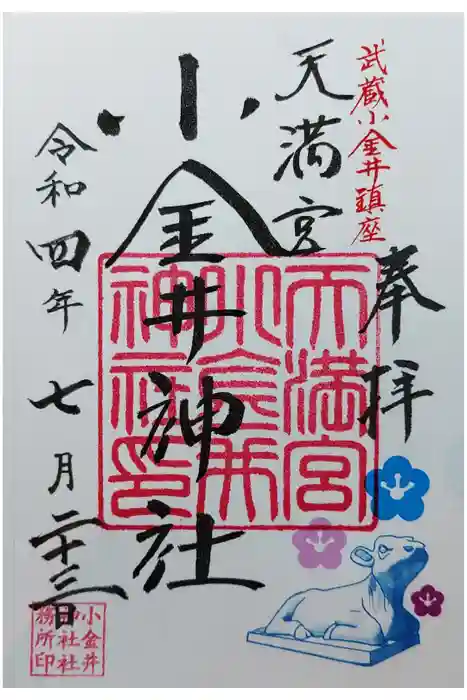 武蔵小金井鎮座
奉拝
天満宮
小金井神社
令和四年七月二十三日
天満宮
小金井
神社印
小金井
神社社
務所印